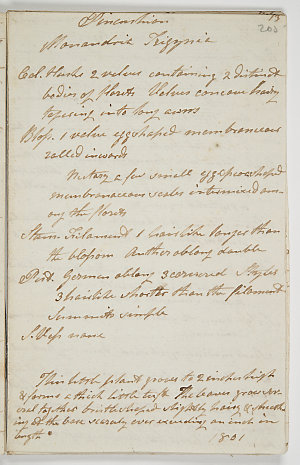 Pincushion
203
Monandria Trigynia
Cal. Husks 2 valves containing 2 distinct
bodies of florets Valves concave hairy
tapering into long awns
Blos. 1 valve egg shaped membranaceous
rolled inwards
Nectary a few small egg spear shaped
membranaceous scales intermixed am-
ong the florets
Stam. Filament 1 hairlike longer than
the blossom Anther oblong double
Post. Germen oblong 3 cornered Styles
3 hairlike shorter than the filament
Summits simple
S. Vess none
This little plant grows to 2 inches high
& forms a thick little tuft The leaves grow sev
eral together bristle shaped slightly hairy &
ing at the base scarcely ever exceeding an inch in
length
1801